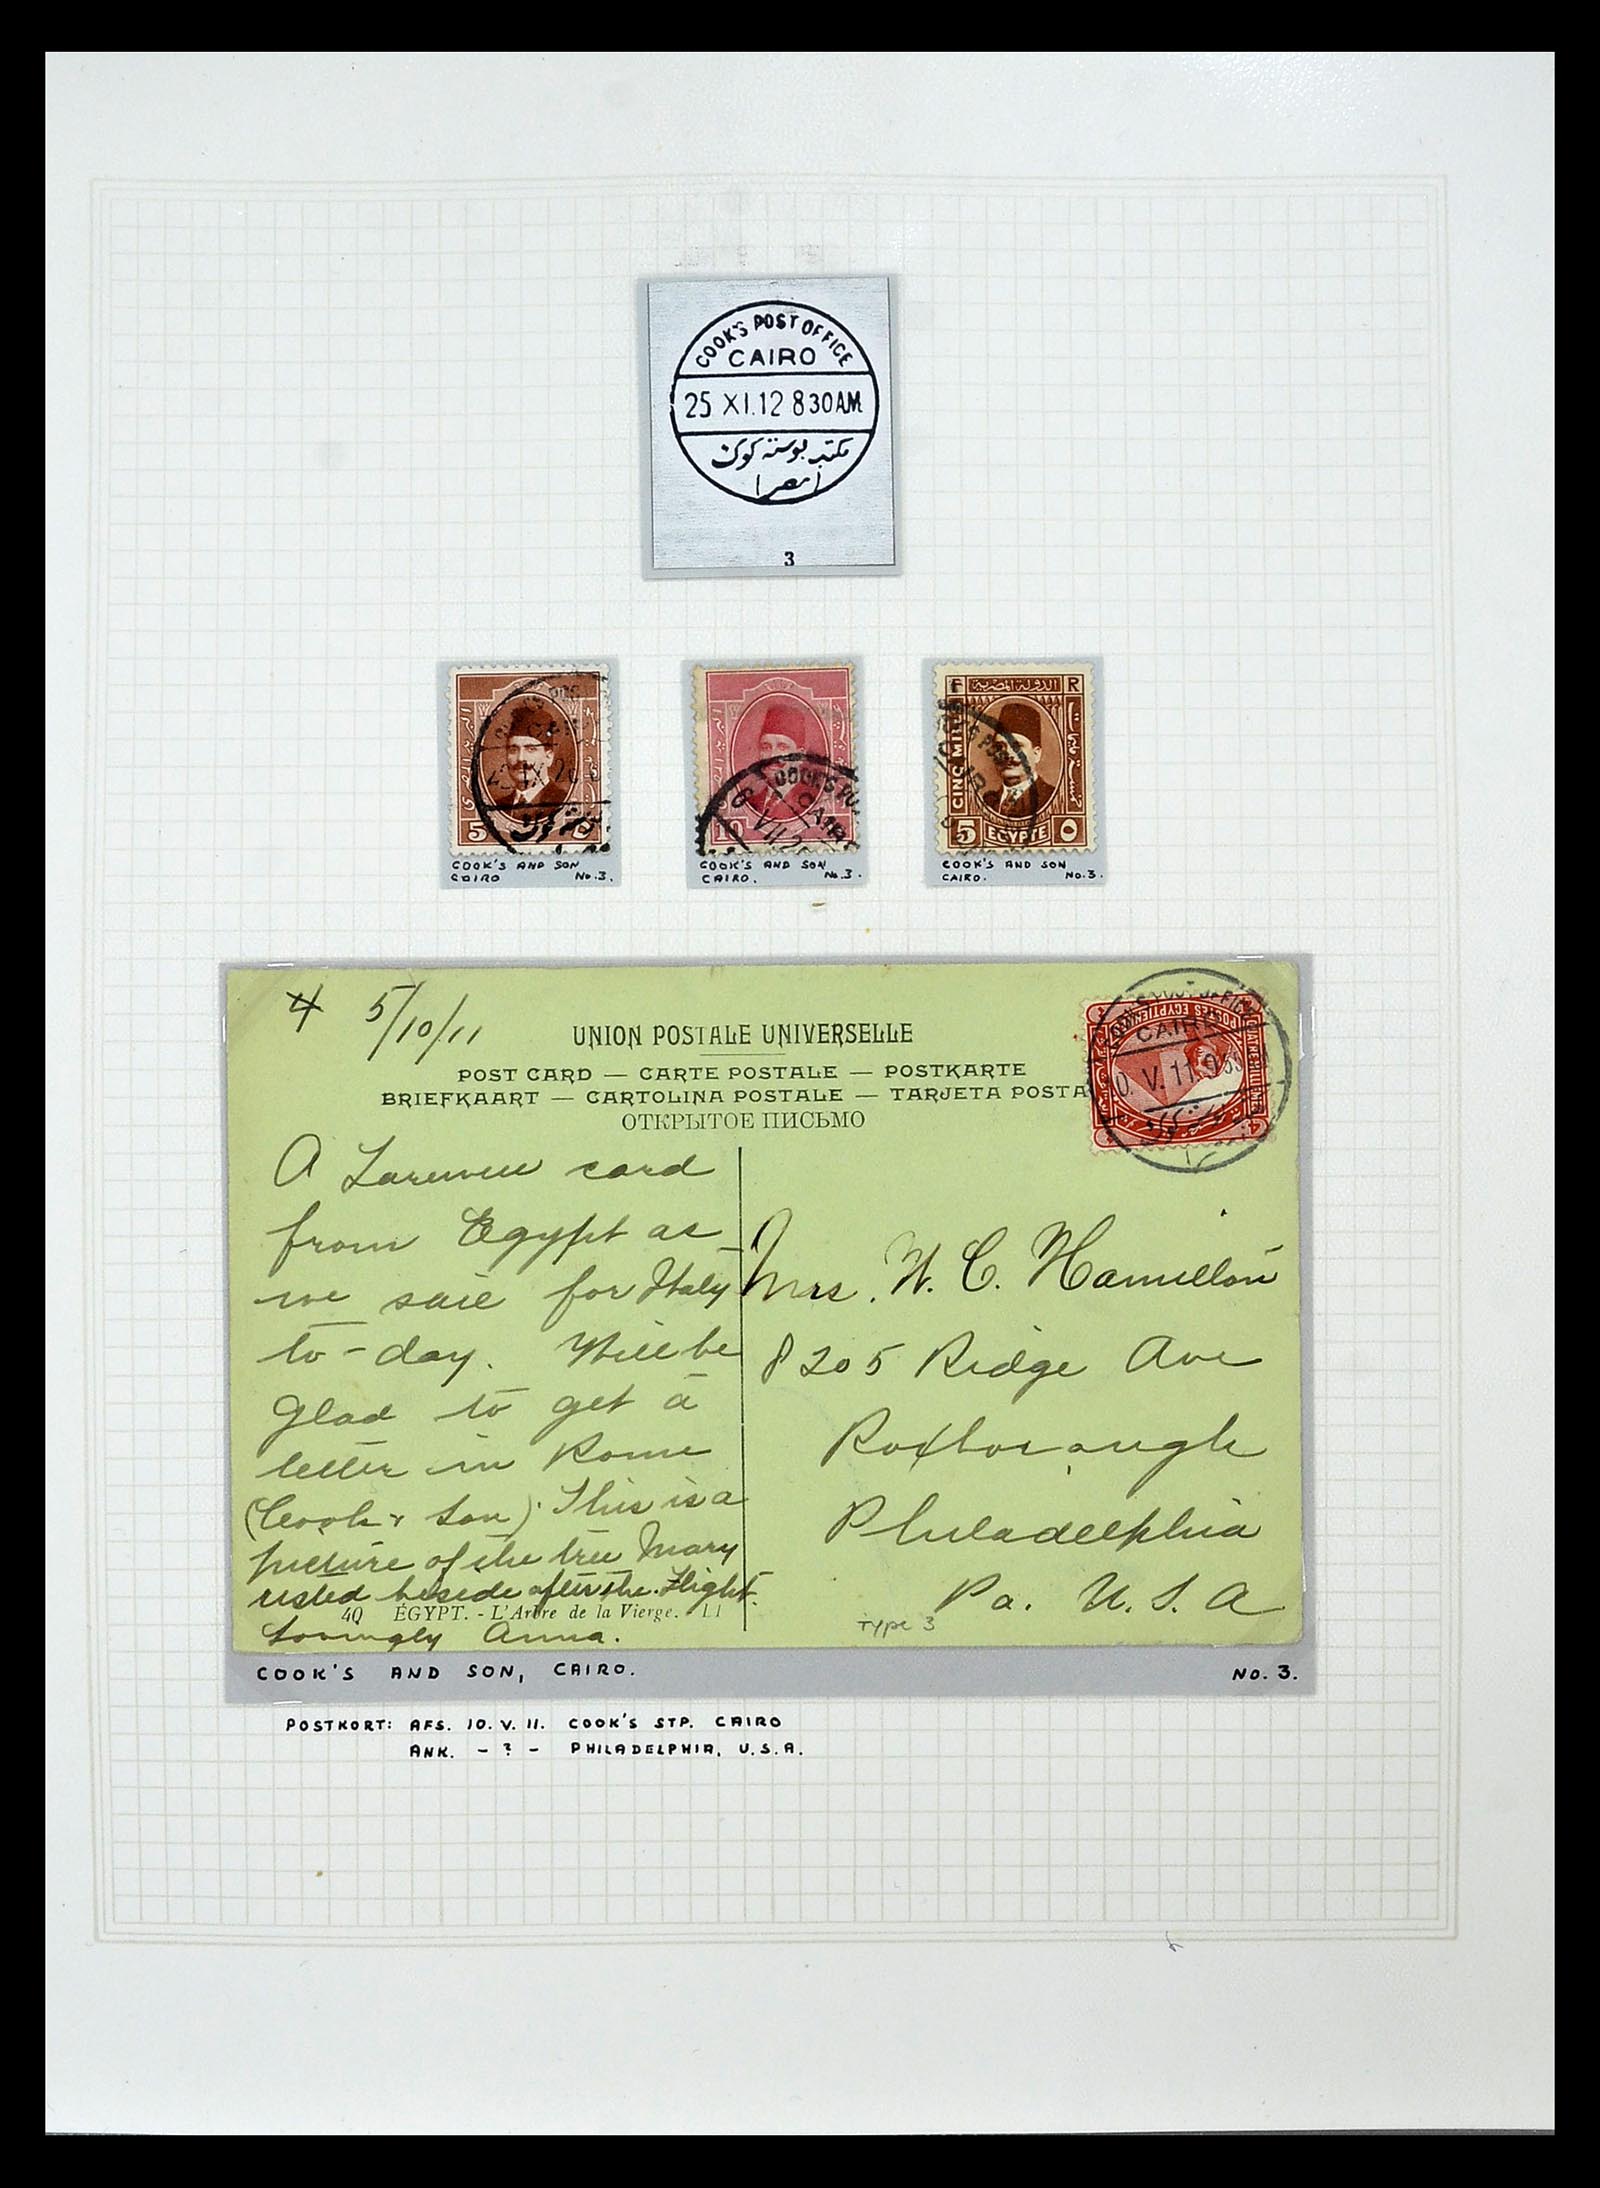 COOK'S POST OFFICE
CAIRO
25 XI.12 830AM
مكتب بوستة كوك
مصر
3
5
COOK'S AND SON
CAIRO No.3.
10
COOK'S
CAIR
VII.2
COOK'S AND SON
CAIRO. No.3.
F الدولة المصرية R
CINQ MILL
5 EGYPTE
COOK'S AND SON
CAIRO. No.3.
4 5/10/11
UNION POSTALE UNIVERSELLE
POST CARD — CARTE POSTALE — POSTKARTE
BRIEFKAART — CARTOLINA POSTALE — TARJETA POSTA
ОТКРЫТОЕ ПИСЬМО
POSTES EGYPTIENNES
CAIRO
0. V. 11.9
A Farewell card
from Egypt as
we sail for Italy
to-day. Will be
glad to get a
letter in Rome
(Cook & Son). This is a
picture of the tree Mary
rested beside after the Flight.
40 ÉGYPT. - L'Arbre de la Vierge. LL
Lovingly Anna.
Mrs. W. C. Hamilton
8205 Ridge Ave
Roxborough
Philadelphia
Pa. U. S. A
Type 3
COOK'S AND SON, CAIRO. No. 3.
POSTKORT: AFS. 10. V. 11. COOK'S STP. CAIRO
ANK. - ? - PHILADELPHIA, U.S.A.